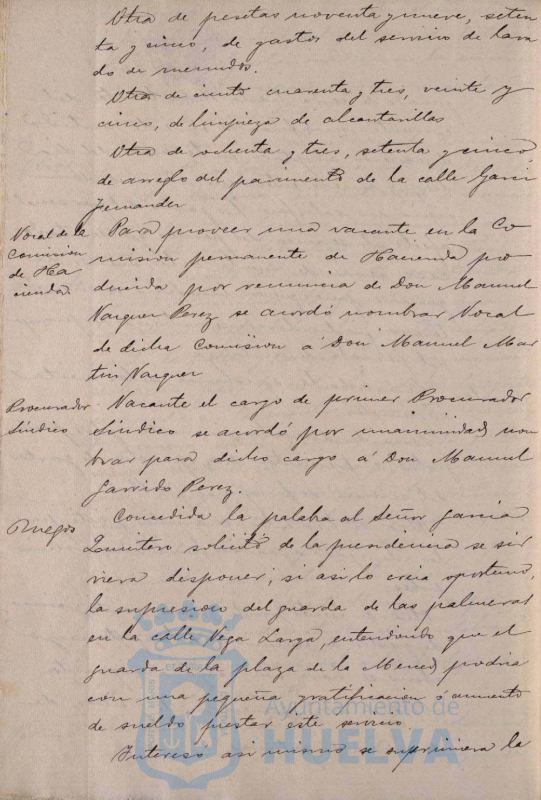 Otra de pesetas noventa y nueve, seten
ta y cinco, de gastos del servicio de lava
do de menudos.
Otra de ciento cuarenta y tres, veinte y
cinco, de limpieza de alcantarillas
Otra de ochenta y tres, setenta y cinco,
de arreglo del pavimento de la calle Garci
Fernandez
Vocal de la
Comision
de Ha
cienda.
Para proveer una vacante en la Co
mision permanente de Hacienda pro
ducida por renuncia de Don Manuel
Vazquez Perez se acordó nombrar Vocal
de dicha Comisión a Don Manuel Mar
tin Vazquez
Procurador
Síndico
Vacante el cargo de primer Procurador
Síndico se acordó por unanimidad nom
brar para dicho cargo á Don Manuel
Garrido Perez.
Ruegos
Concedida la palabra al Señor Garcia
Quintero solicitó de la presidencia se sir
viera disponer, si asi lo creia oportuno,
la supresion del guarda de las palmeras
en la calle Vega Larga, entendiendo que el
guarda de la plaza de la Merced podria
con una pequeña gratificacion ó aumento
de sueldo prestar este servicio
Intereso asi mismo se suprimiera la
Ayuntamiento de
HUELVA